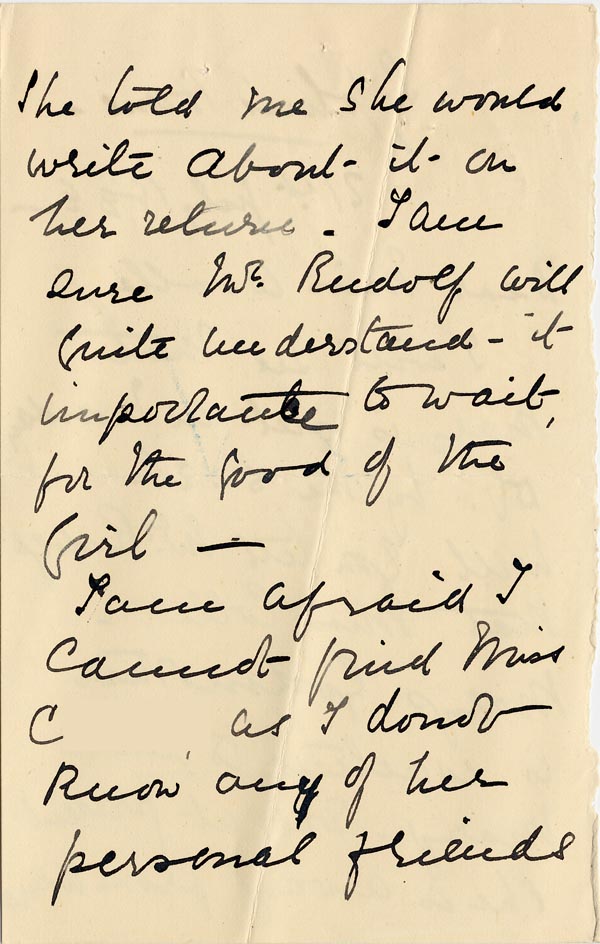 She told me she would
write about it on
her return. I am
sure Mr. Rudolf will
quite understand - it
importante to wait,
for the good of the
girl —
I am afraid I
cannot find Miss
C as I donot
know any of her
personal friends